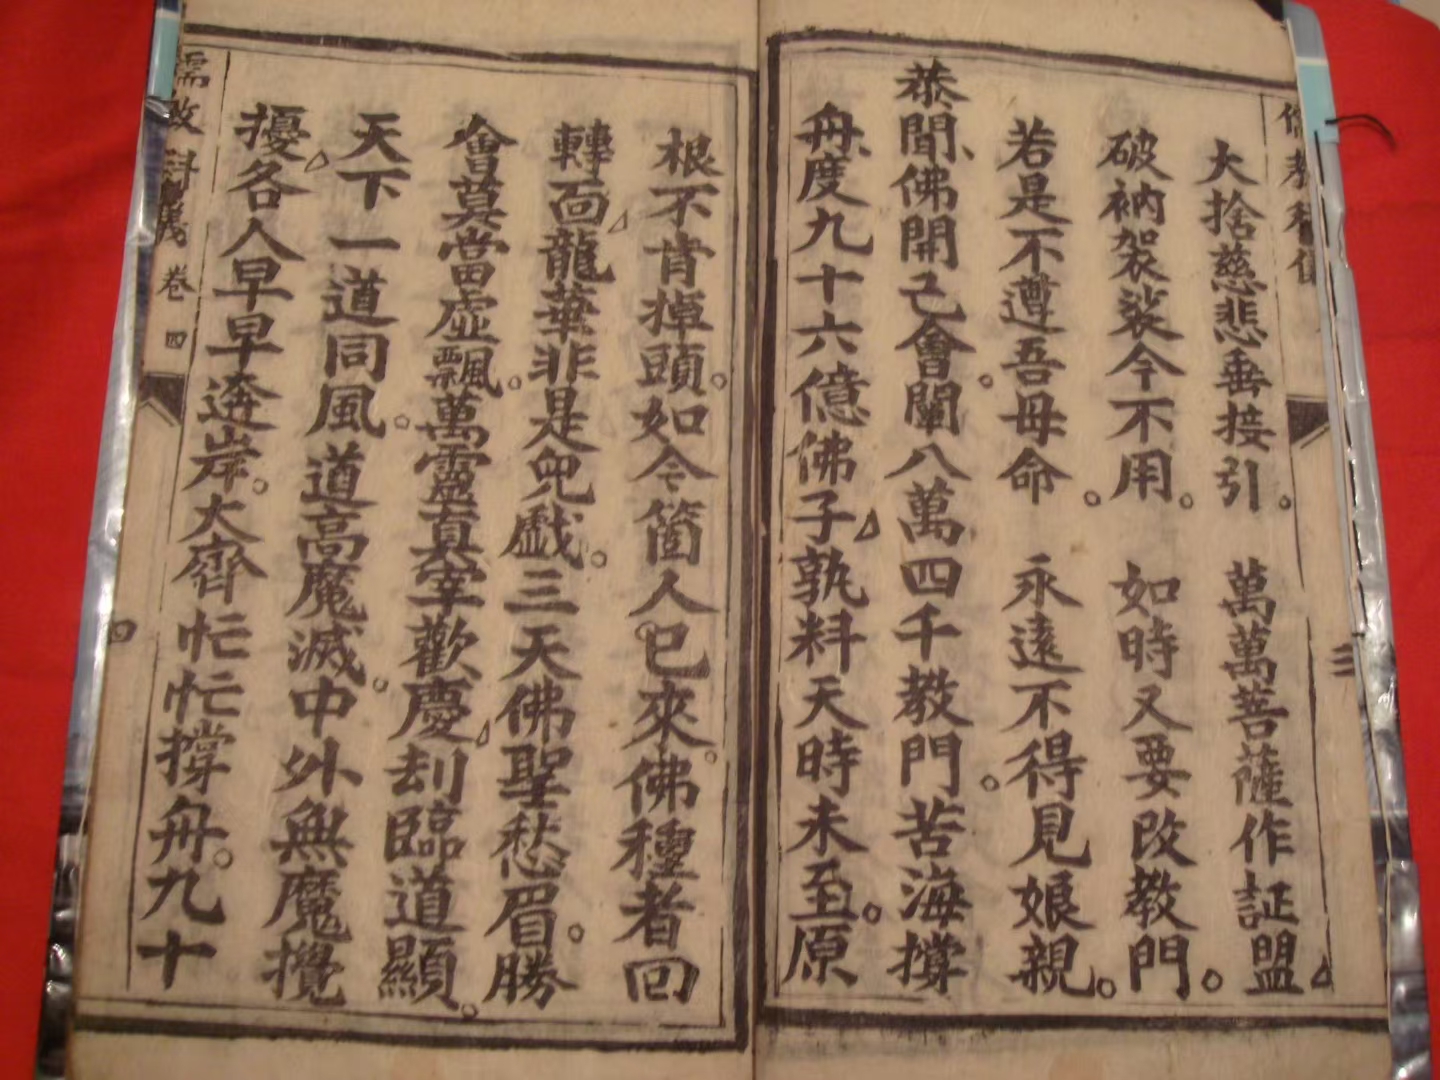 大捨慈悲垂接引。萬萬菩薩作証盟
破衲袈裟今不用。如時又要改教門。
若是不遵吾母命。永遠不得見娘親。
恭聞、佛開己會。闡八萬四千教門。苦海撐
舟、度九十六億佛子孰料天時未至。原
根不肯掉頭。如今箇人已來。佛種者回
轉面龍華非是兒戲。三天佛聖愁眉。勝
會莫當虛飄。萬靈真宰歡慶刦臨道顯。
天下一道同風。道高魔滅。中外無魔攪
擾各人早早逩岸。大齊忙忙撐舟。九十
儒教科儀 卷四